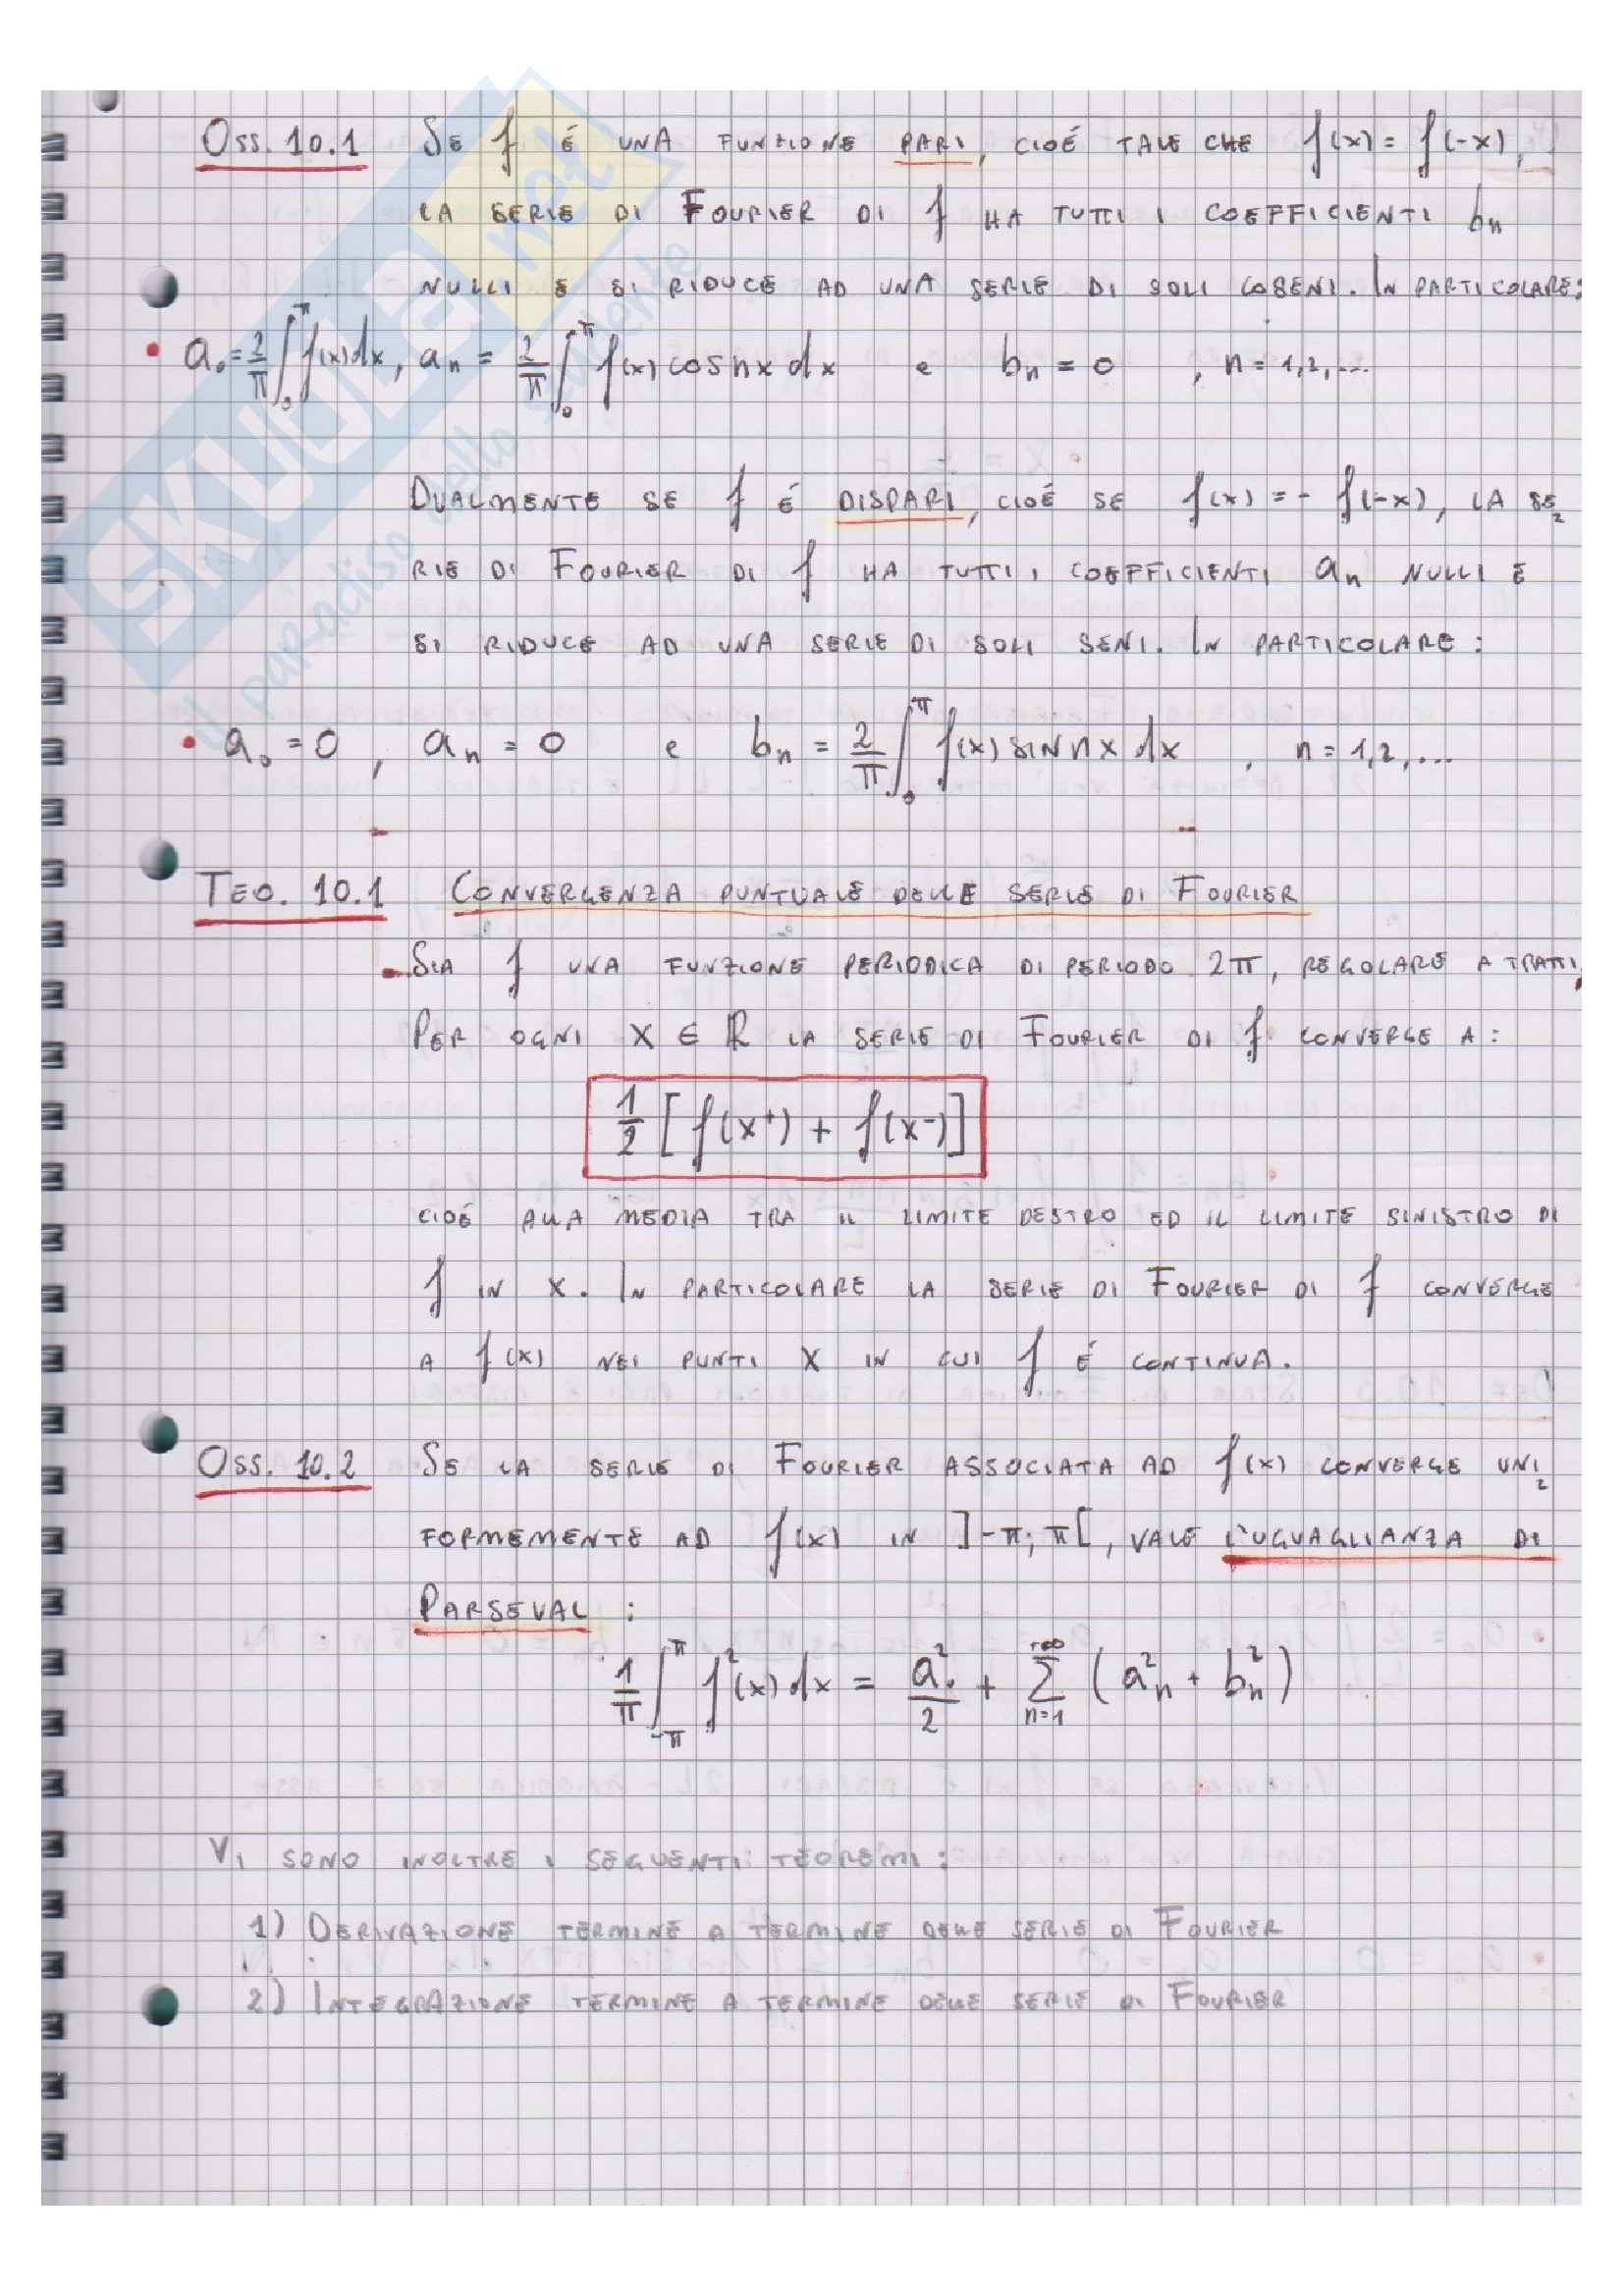 Oss. 10.1 Se f é una funzione pari, cioé tale che f(x) = f(-x),
la serie di Fourier di f ha tutti i coefficienti bn
nulli e si riduce ad una serie di soli coseni. In particolare:
• a₀ = 2/π ∫₀^π f(x)dx, aₙ = 2/π ∫₀^π f(x) cos nx dx e bₙ = 0 , n = 1,2,...
Dualmente se f é dispari, cioé se f(x) = - f(-x), la se=
rie di Fourier di f ha tutti i coefficienti aₙ nulli e
si riduce ad una serie di soli seni. In particolare:
• a₀ = 0 , aₙ = 0 e bₙ = 2/π ∫₀^π f(x) sin nx dx , n = 1,2,...
Teo. 10.1 Convergenza puntuale delle serie di Fourier
Sia f una funzione periodica di periodo 2π, regolare a tratti.
Per ogni x ∈ ℝ la serie di Fourier di f converge a:
1/2 [f(x⁺) + f(x⁻)]
cioé alla media tra il limite destro ed il limite sinistro di
f in x. In particolare la serie di Fourier di f converge
a f(x) nei punti x in cui f é continua.
Oss. 10.2 Se la serie di Fourier associata ad f(x) converge uni=
formemente ad f(x) in ]-π; π[, vale l'uguaglianza di
Parseval :
1/π ∫₋π^π f²(x) dx = a₀²/2 + Σₙ₌₁^+∞ (aₙ² + bₙ²)
Vi sono inoltre i seguenti teoremi:
1) Derivazione termine a termine delle serie di Fourier
2) Integrazione termine a termine delle serie di Fourier
SKUOLA.net
il paradiso dello studente